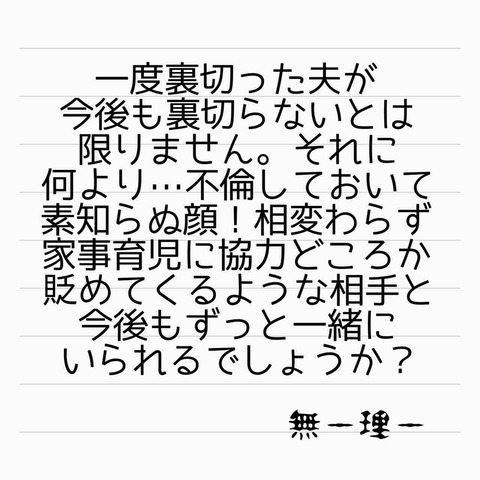 一度裏切った夫が
今後も裏切らないとは
限りません。それに
何より…不倫しておいて
素知らぬ顔！相変わらず
家事育児に協力どころか
貶めてくるような相手と
今後もずっと一緒に
いられるでしょうか？
無ー理ー